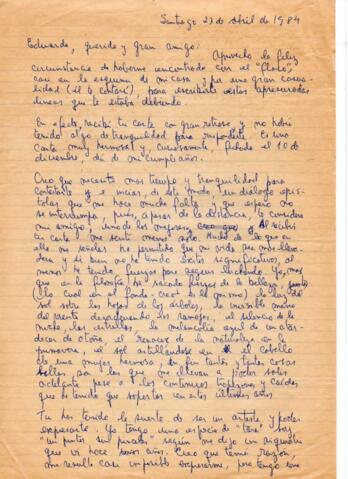 Santiago 27 de Abril de 1984
Eduardo, querido y gran amigo:
Aprovecho la feliz
circunstancia de haberme encontrado con el "Flaco",
casi en la esquina de mi casa y por una gran casua-
lidad (él te contará), para escribirte estas apresuradas
líneas que te estaba debiendo.
En efecto, recibí tu carta con gran retraso y no había
tenido algo de tranquilidad para responderte. Es una
carta muy hermosa y, curiosamente, fechada el 10 de
diciembre, día de mi cumpleaños.
Creo que necesito más tiempo y tranquilidad para
contestarte y e iniciar, de este modo, un diálogo epis-
tolar que me hace mucha falta, y que espero no
se interrumpa, pues, a pesar de la distancia, te considero
mi amigo y uno de los mejores. Al recibir
tu carta me sentí menos solo. Mucho de lo que en
ella me señalas ha permitido que mi vida sea más lleva-
dera y si bien no he tenido éxitos significativos, al
menos he tenido fuerzas para seguir luchando. Yo, más
que en la filosofía, he sacado fuerzas de la belleza,
(lo cual en el fondo creo es lo mismo) la luz del
sol sobre las hojas de los árboles, la invisible mano
del viento despeinando los ramajes, el silencio de la
noche, las estrellas, la melancolía azul de un atar-
decer de otoño, el renacer de la naturaleza en la
primavera, un sol astillándose en el cabello
de una mujer hermosa, en fin, tantas y tantas cosas
bellas, son las que me llevan a poder salir
adelante pese a los continuos tropiezos y caídas
que he tenido que soportar en estos últimos años
Tu has tenido la suerte de ser un artista y poder
expresarte. Yo tengo una especie de "tara" soy
"un pintor sin pincel" según me dijo un siquiatra
que vi hace años. Creo que tenía razón,
me resulta casi imposible expresarme, pero tengo una